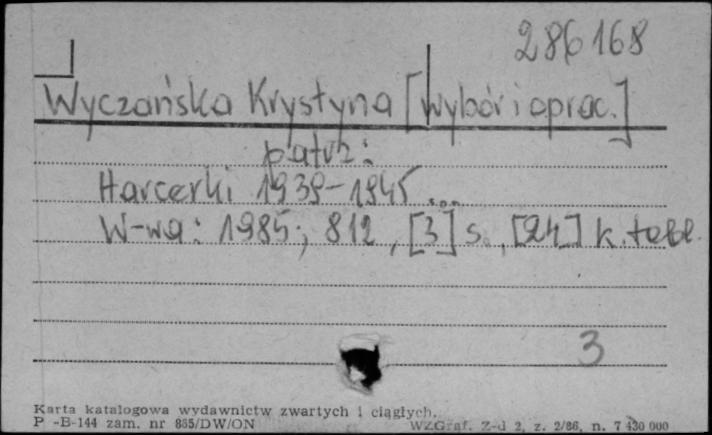 286168
Wyczańska Krystyna [Wybór i oprac.]
patrz:
Harcerki 1939-1945 ...
W-wa: 1985; 812, [3] s., [24] k. tabl.
3
Karta katalogowa wydawnictw zwartych i ciągłych.
P -B-144 zam. nr 865/DW/ON WZGraf. Z-d 2, z. 2/86, n. 7 430 000